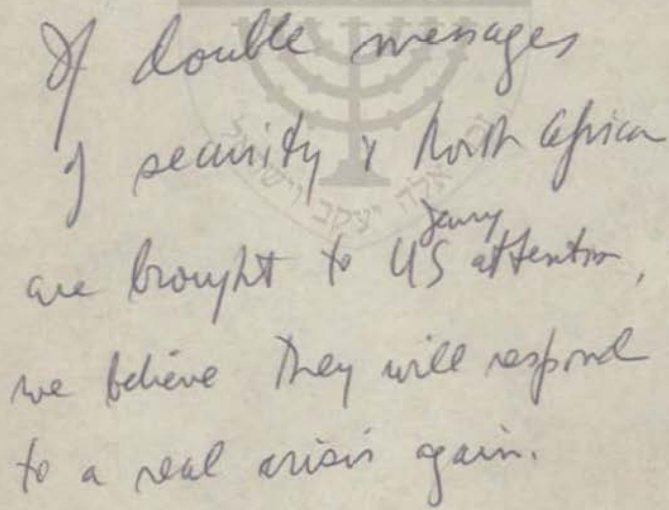 If double messages
of security & North African
Jewry
are brought to US attention,
we believe they will respond
to a real crisis again.
אלה יעקב וישראל